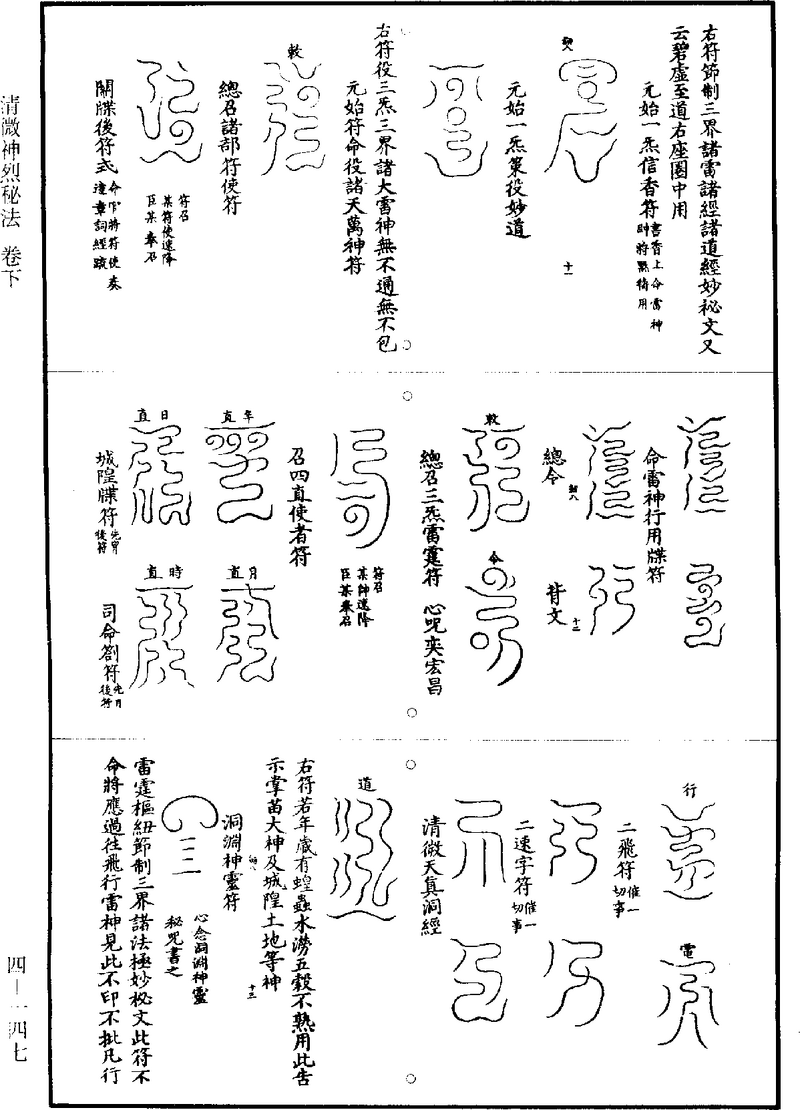 右符節制三界諸雷諸經諸道經妙祕文又
云碧虛至道右座圈中用
元始一炁信香符
書香上命雷神
十一
元始一炁策役妙道
右符役三炁三界諸大雷神無不通無不包
元始符命役諸天萬神符
敕
總召諸部符使符
符召
某符使速降
臣某奉召
關牒後符式
命下將符使奏
達章詞經疏
命雷神行用牒符
總令
背文
十二
敕
令
總召三炁雷霆符
心咒奕宏昌
符召
某帥速降
臣某奉召
召四直使者符
年直
月直
日直
時直
城隍牒符
後符
司命劄符
後符
行
電
二飛符
催一切事
二速字符
催一切事
清微天真洞經
道
右符若年歲有蝗蟲水澇五穀不熟用此告
示掌苗大神及城隍土地等神
十三
洞淵神靈符
心念洞淵神靈
秘咒書之
雷霆樞紐節制三界諸法極妙秘文此符不
命將應過往飛行雷神見此不印不批凡行
清微神烈秘法 卷下
四—一四七